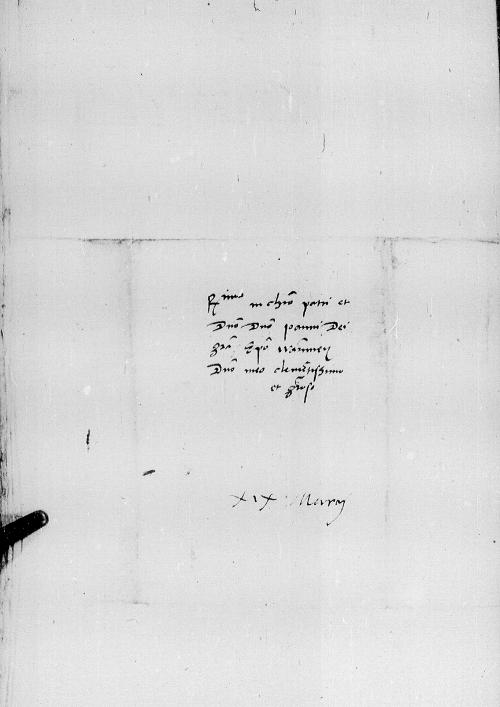 R<sup>imo</sup> in chro patri et
Dno Dno Joanni Dei
gra Epo Warmien
Dno meo clementissimo
et groso
XIX Marcij